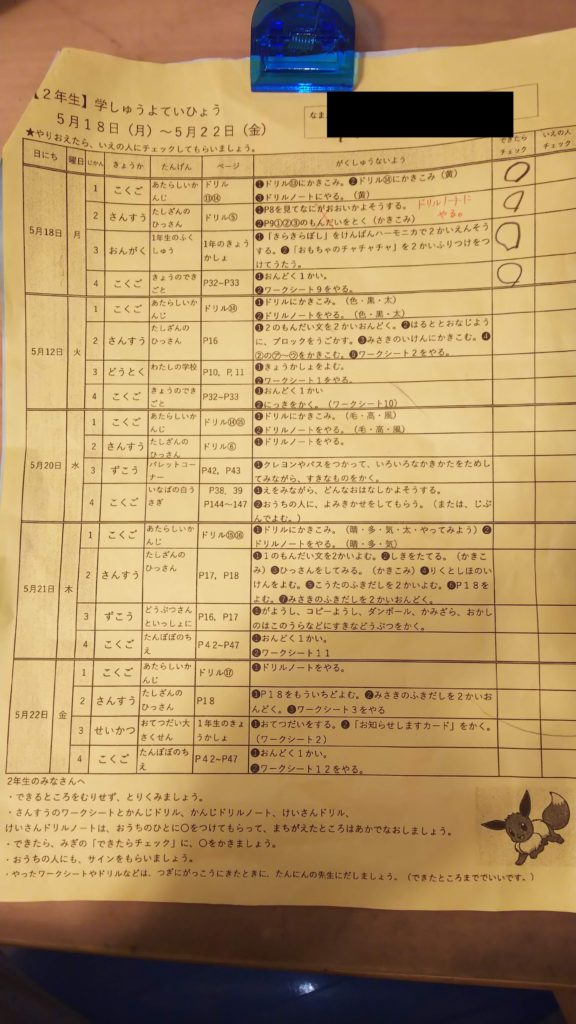 【2年生】学しゅうよていひょう
5月18日(月)~5月22日(金)
なま
★やりおえたら、いえの人にチェックしてもらいましょう。
日にち 曜日 じかん きょうか たんげん ページ がくしゅうないよう できたらチェック いえの人チェック
5月18日 月
1 こくご あたらしいかんじ ドリル⑬⑭ ❶ドリル⑬にかきこみ。❷ドリル⑭にかきこみ(黄)
❸ドリルノートにやる。(黄)
2 さんすう たしざんのひっさん ドリル⑤ ❶P8を見てなにがおおいかよそうする。
❷P9①②③のもんだいをとく(かきこみ)
ドリルノートに
やる。
3 おんがく 1年生のふくしゅう 1年のきょうかしょ ❶「きらきらぼし」をけんばんハーモニカで2かいえんそう
する。❷「おもちゃのチャチャチャ」を2かいふりつけをつ
けてうたう。
4 こくご きょうのできごと P32~P33 ❶おんどく1かい。
❷ワークシート9をやる。
5月12日 火
1 こくご あたらしいかんじ ドリル⑭ ❶ドリルにかきこみ。(色・黒・太)
❷ドリルノートをやる。(色・黒・太)
2 さんすう たしざんのひっさん P16 ❶12のもんだい文を2かいおんどく。❷はるととおなじよう
に、ブロックをうごかす。❸みさきのいけんにかきこむ。❹
②のア~ウをかきこむ。❺ワークシート2をやる。
3 どうとく わたしの学校 P10, P,11 ❶きょうかしょをよむ。
❷ワークシート1をやる。
4 こくご きょうのできごと P32~P33 ❶おんどく1かい
❷にっきをかく。(ワークシート10)
5月20日 水
1 こくご あたらしいかんじ ドリル⑭⑮ ❶ドリルにかきこみ。(毛・高・風)
❷ドリルノートをやる。(毛・高・風)
2 さんすう たしざんのひっさん ドリル⑥ ❶ドリルノートをやる。
3 ずこう パレットコーナー P42, P43 ❶クレヨンやパスをつかって、いろいろなかきかたをためし
てみながら、すきなものをかく。
4 こくご いなばの白うさぎ P38, 39 P144~147 ❶えをみながら、どんなおはなしかよそうする。
❷おうちの人に、よみきかせをしてもらう。(または、じぶ
んでよむ。)
5月21日 木
1 こくご あたらしいかんじ ドリル⑮⑯ ❶ドリルにかきこみ。(晴・多・気・太・やってみよう)❷
ドリルノートをやる。(晴・多・気)
2 さんすう たしざんのひっさん P17, P18 ❶1のもんだい文を2かいよむ。❷しきをたてる。(かきこ
み)❸ひっさんをしてみる。(かきこみ)❹りくとしほのい
けんをよむ。❺こうたのふきだしを2かいよむ。❻P18を
よむ。❼みさきのふきだしを2かいおんどく。
3 ずこう どうぶつさんといっしょに P16, P17 ❶がようし、コピーようし、ダンボール、かみざら、おかし
のはこのうらなどにすきなどうぶつをかく。
4 こくご たんぽぽのちえ P42~P47 ❶おんどく1かい。
❷ワークシート11
5月22日 金
1 こくご あたらしいかんじ ドリル⑰ ❶ドリルノートをやる。
2 さんすう たしざんのひっさん P18 ❶P18をもういちどよむ。❷みさきのふきだしを2かいお
んどく。❸ワークシート3をやる
3 せいかつ おてつだい大さくせん 1年生のきょうかしょ ❶おてつだいをする。❷「お知らせしますカード」をかく。
(ワークシート2)
4 こくご たんぽぽのちえ P42~P47 ❶おんどく1かい。
❷ワークシート12をやる。
2年生のみなさんへ
・できるところをむりせず、とりくみましょう。
・さんすうのワークシートとかんじドリル、かんじドリルノート、けいさんドリル、
けいさんドリルノートは、おうちのひとに〇をつけてもらって、まちがえたところはあかでなおしましょう。
・できたら、みぎの「できたらチェック」に、〇をかきましょう。
・おうちの人にも、サインをもらいましょう。
・やったワークシートやドリルなどは、つぎにがっこうにきたときに、たんにんの先生にだしましょう。(できたところまででいいです。)